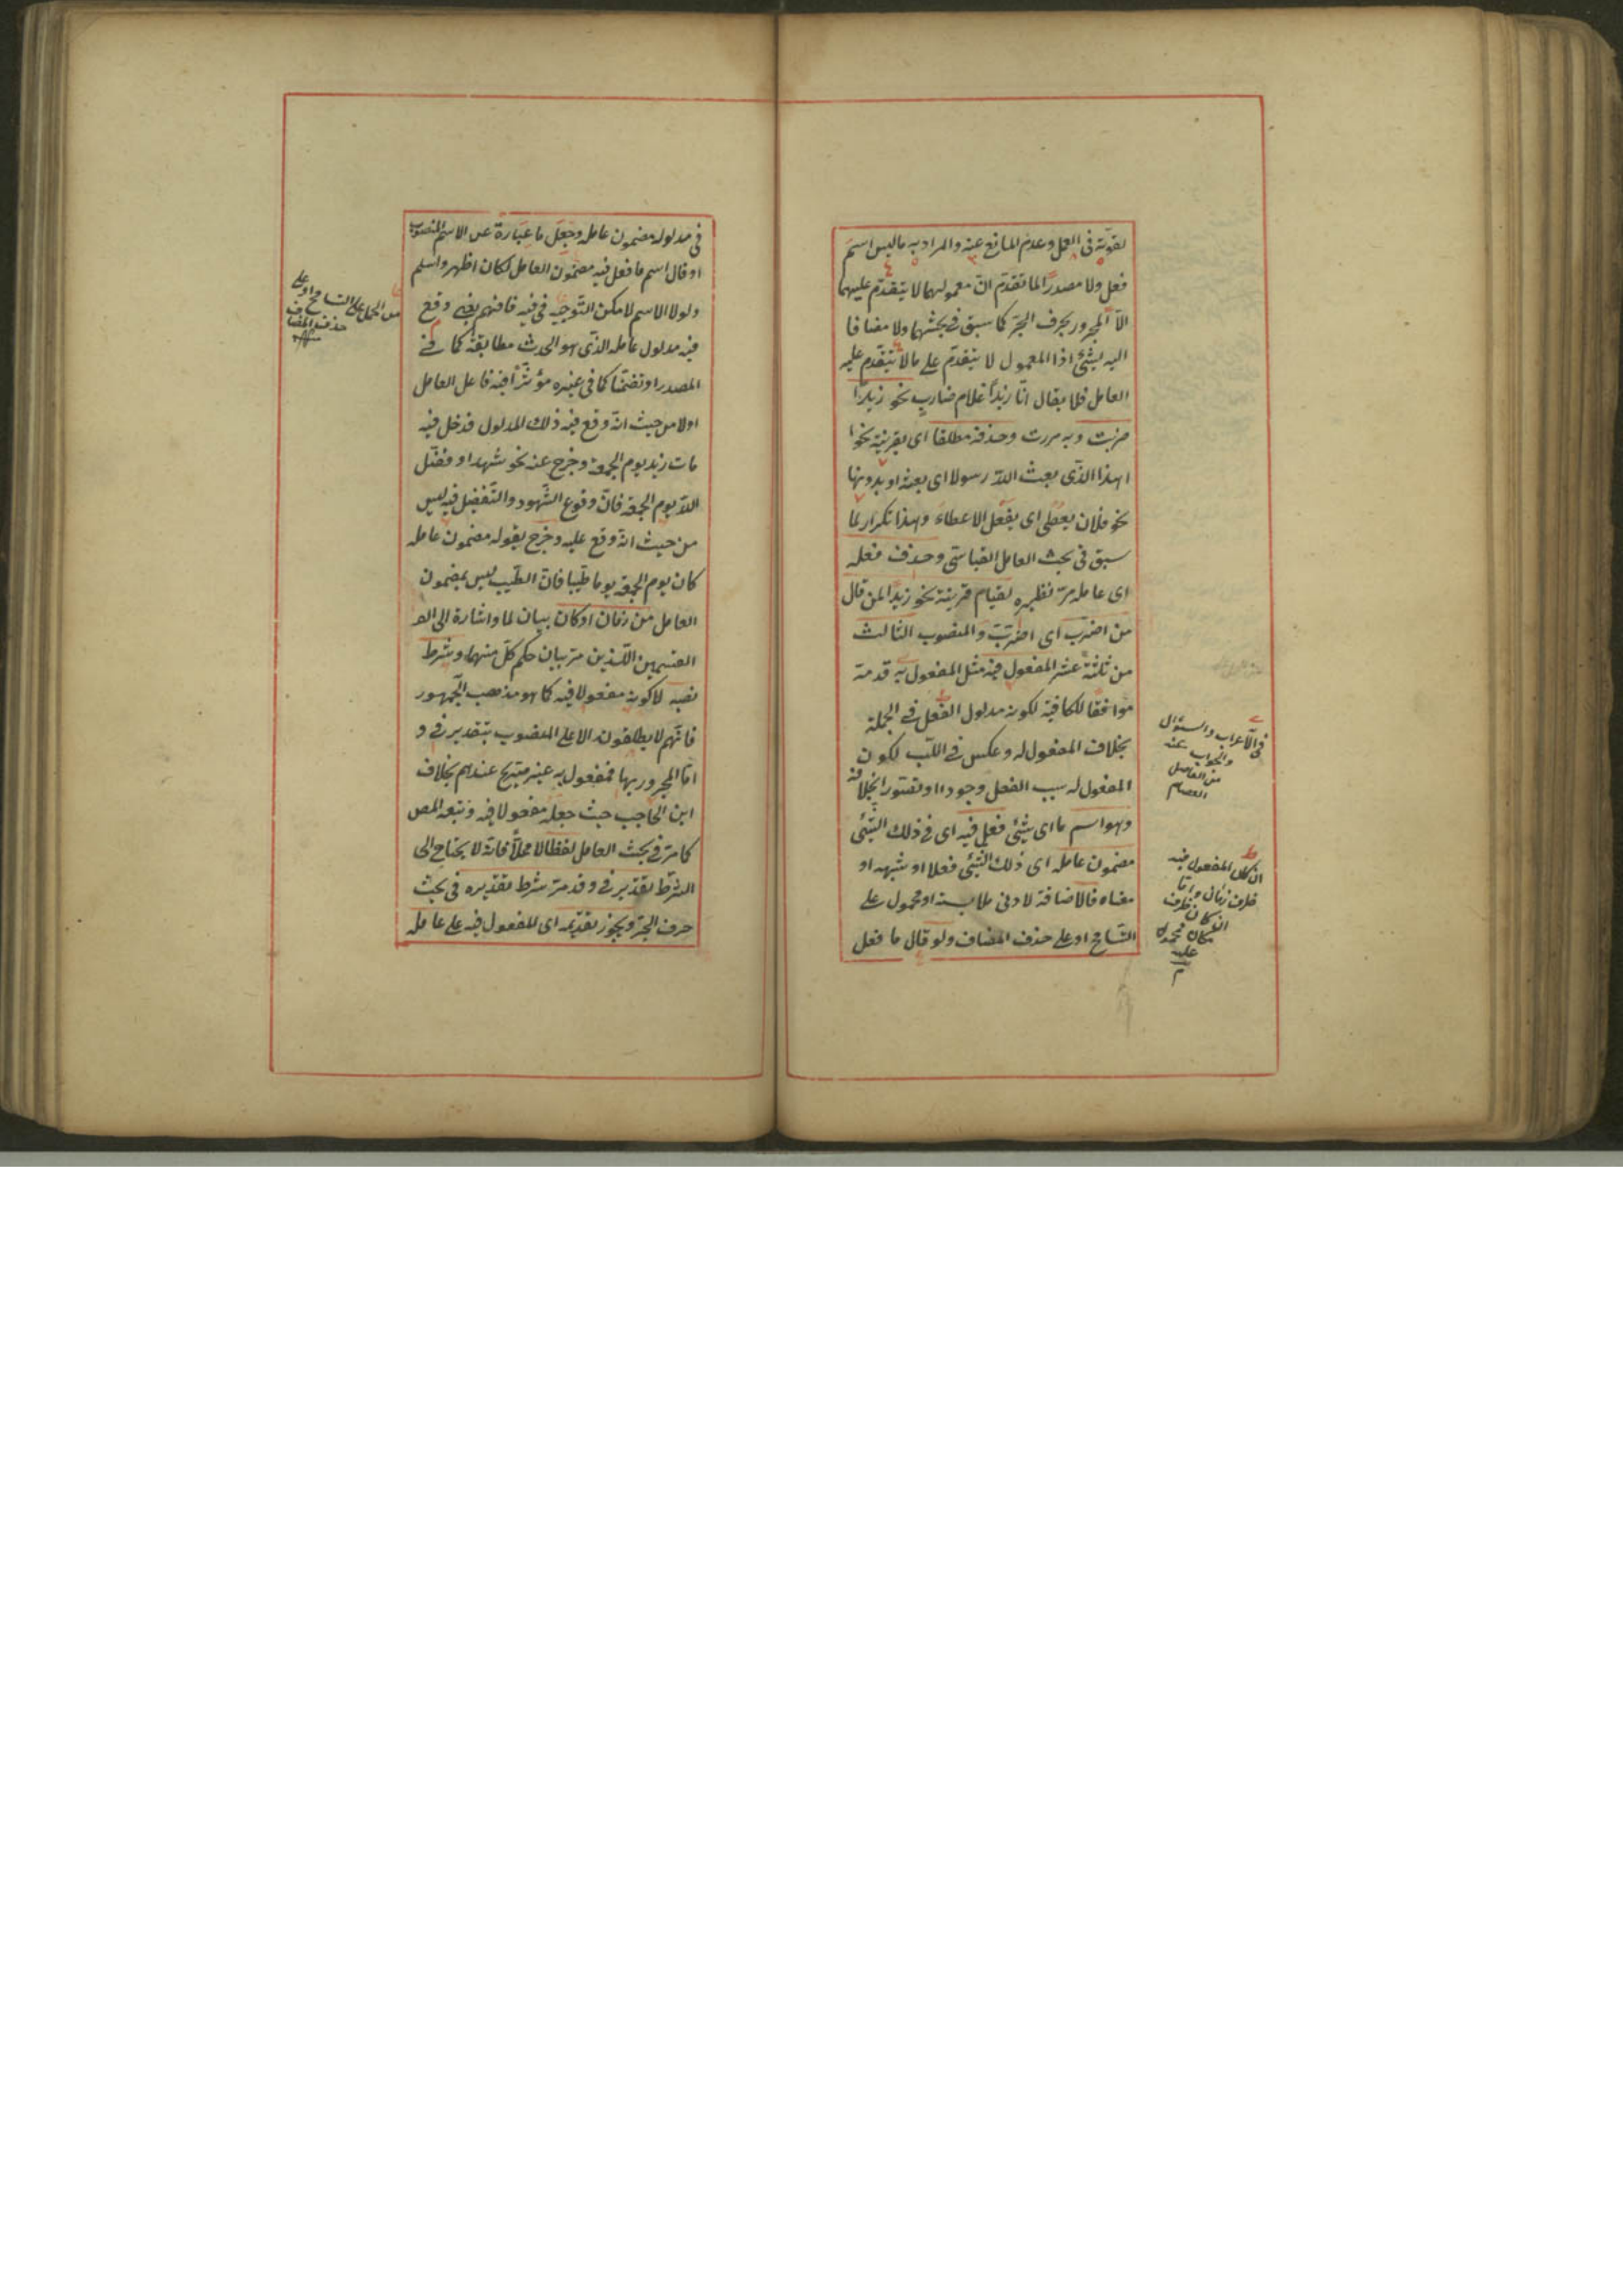 لقوته فى العمل وعدم المانع عنه والمراد به ما ليس اسم
فعل ولا مصدرا لما تقدم ان معمولهما لا يتقدم عليهما
الا المجرور بحرف الجر كما سبق فى بحثهما ولا مضافا
اليه لشئ اذا المعمول لا يتقدم على ما لا يتقدم عليه
العامل فلا يقال انا زيدا غلام ضارب نحو زيدا
ضربت وبه مررت وحذفه مطلقا اى بقرينة نحو
اهذا الذى بعث الله رسولا اى بعثه او بدونها
نحو فلان يعطى اى يفعل الاعطاء وهذا تكرار لما
سبق فى بحث العامل القياسى وحذف فعله
اى عامله مر نظيره لقيام قرينة نحو زيدا لمن قال
من اضرب اى اضرب والمنصوب الثالث
من ثلثة عشر المفعول فيه مثل المفعول به قدمه
موافقا للكافية لكونه مدلول الفعل فى الجملة
بخلاف المفعول له وعكس فى اللب لكون
المفعول له سبب الفعل وجودا او تصورا بخلافه
وهو اسم ما اى شئ فعل فيه اى فى ذلك الشئ
مضمون عامله اى ذلك الشئ فعلا او شبهه او
معناه فالاضافة لادنى ملابسة او محمول على
التسامح او على حذف المضاف ولو قال ما فعل
فى الاعراب والسؤال
والجواب عنه
من الفاضل
العصام
ان كان المفعول فيه
ظرف زمان واما
ان كان ظرف
مكان فمحمول
عليه
م
فى مدلوله مضمون عامله وجعل ما عبارة عن الاسم المنصوب
او قال اسم ما فعل فيه مضمون العامل لكان اظهر واسلم
ولولا الاسم لامكن التوجيه فى فيه فافهم يعنى وقع
فيه مدلول عامله الذى هو الحدث مطابقة كما فى
المصدر او تضمنا كما فى غيره مؤثرا فيه فاعل العامل
اولا من حيث انه وقع فيه ذلك المدلول فدخل فيه
مات زيد يوم الجمعة وخرج عنه نحو شهد او فضل
الله يوم الجمعة فان وقوع الشهود والتفضيل فيه ليس
من حيث انه وقع عليه وخرج بقوله مضمون عامله
كان يوم الجمعة يوما طيبا فان الطيب ليس بمضمون
العامل من زمان او كان بيان لما واشارة الى
القسمين اللذين مر بيان حكم كل منهما وشرط
نصبه لا كونه مفعولا فيه كما هو مذهب الجمهور
فانهم لا يطلقونه الا على المنصوب بتقدير فى و
اما المجرور بها فمفعول به غير صريح عندهم بخلاف
ابن الحاجب حيث جعله مفعولا فيه وتبعه المص
كما مر فى بحث العامل لفظا لا محلا فانه لا يحتاج الى
الشرط تقدير فى وقد مر شرط تقديره فى بحث
حرف الجر ويجوز تقديمه اى المفعول فيه على عامله
من الحمل على التسامح او على
حذف المضاف